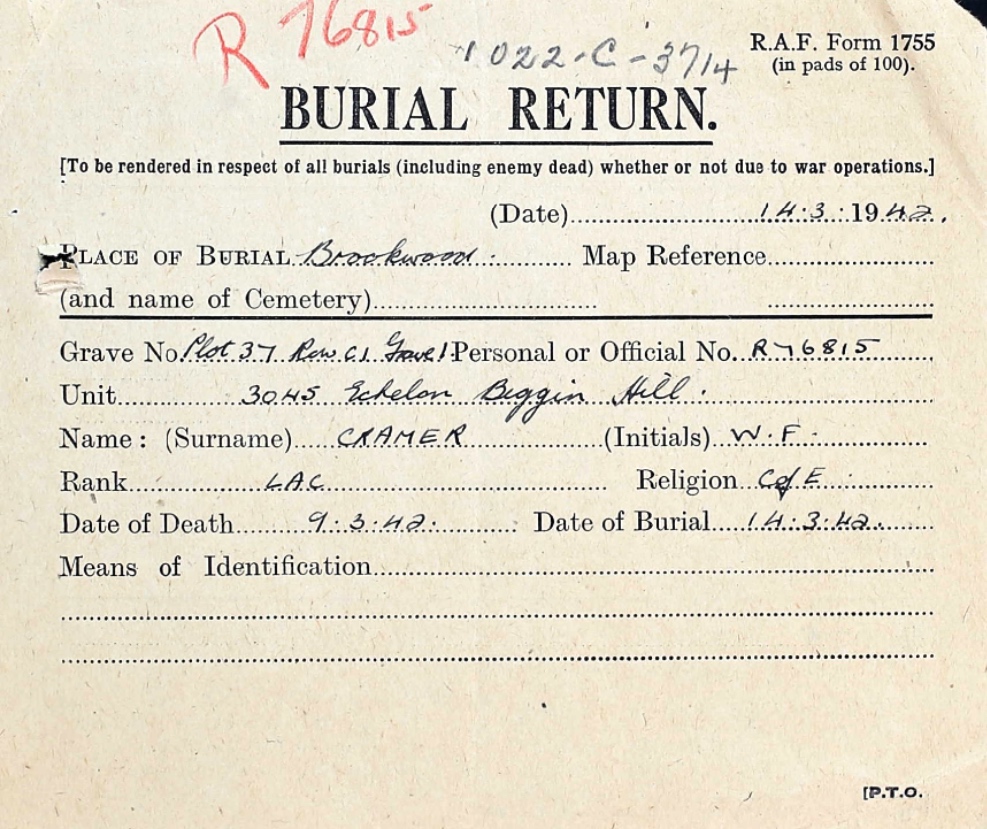 R 76815
1022-C-3714
R.A.F. Form 1755
(in pads of 100).
BURIAL RETURN.
[To be rendered in respect of all burials (including enemy dead) whether or not due to war operations.]
(Date) 14.3.1942.
PLACE OF BURIAL Brookwood. Map Reference
(and name of Cemetery)
Grave No. Plot 37 Row C1 Grave 1 Personal or Official No. R76815
Unit 3045 Echelon Biggin Hill.
Name: (Surname) CRAMER (Initials) W.F.
Rank LAC Religion C of E
Date of Death 9.3.42. Date of Burial 14.3.42.
Means of Identification
[P.T.O.